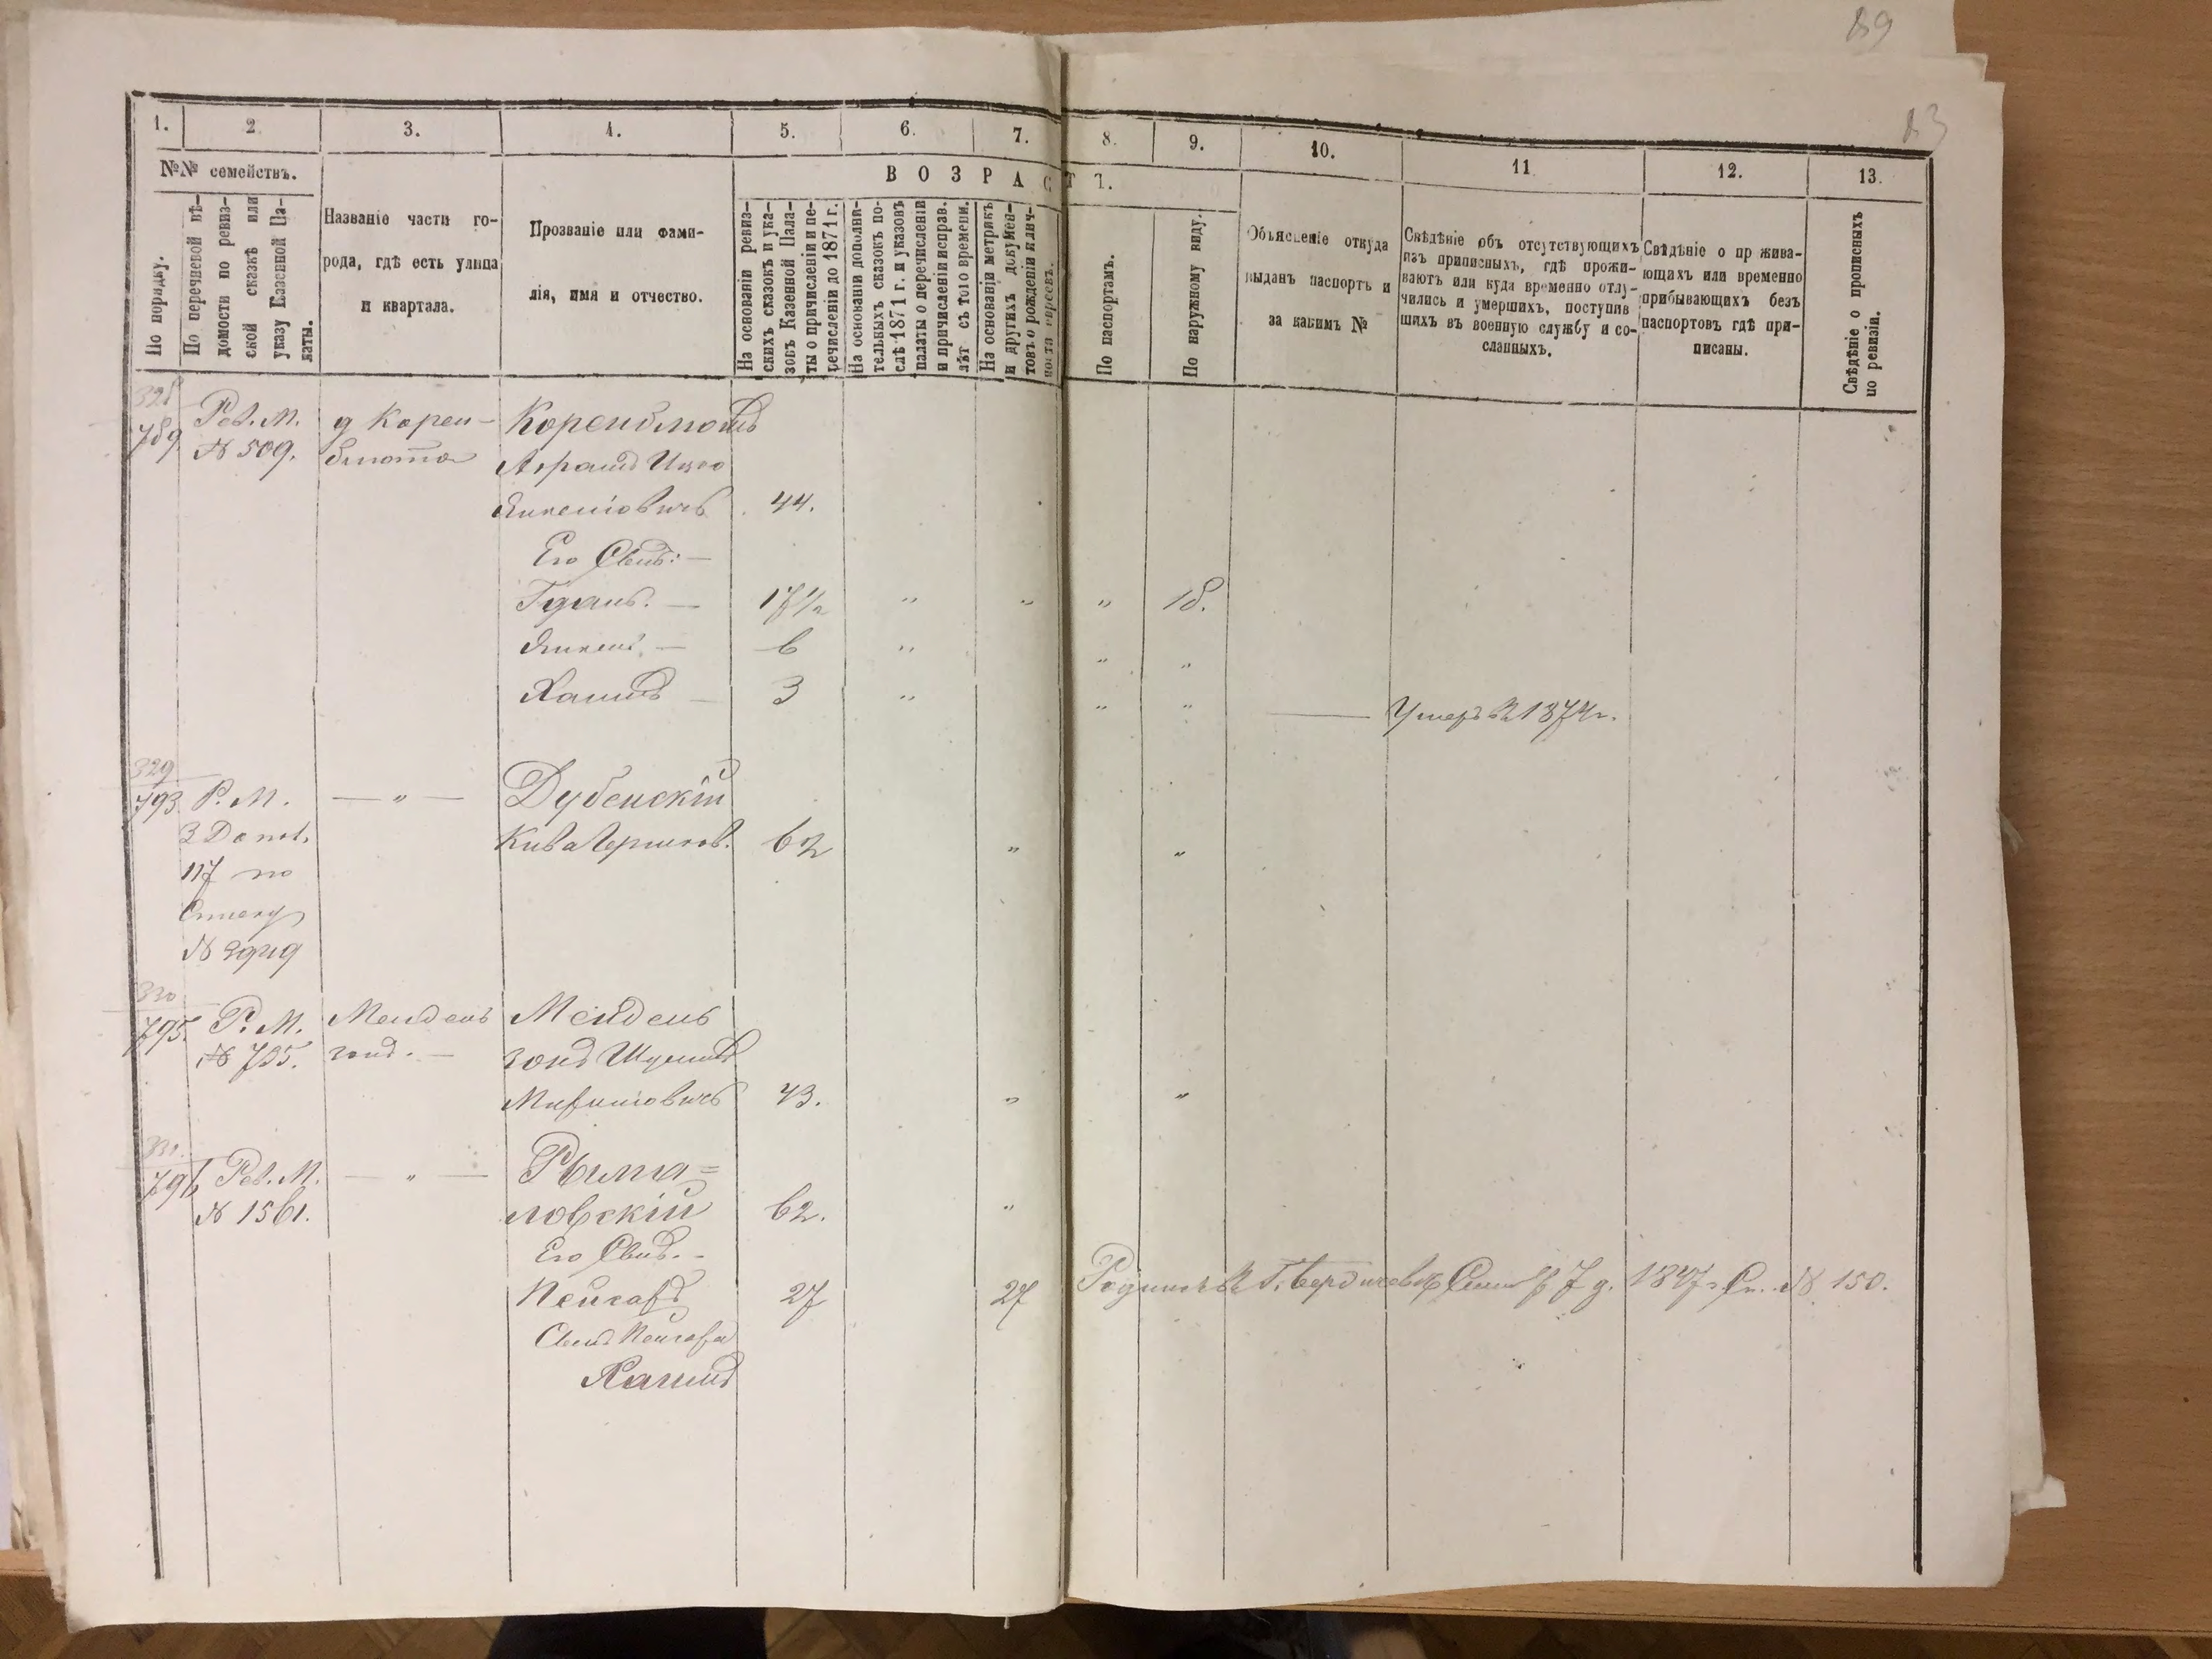 89
83
1.
2
3.
4.
5.
6.
7.
8.
9.
10.
11
12.
13.
№№ семействъ.
В О З Р А С Т Ъ.
По порядку.
По перечневой вѣ-
домости по ревиз-
ской сказкѣ или
указу Казенной Па-
латы.
Названіе части го-
рода, гдѣ есть улица
и квартала.
Прозваніе или фами-
лія, имя и отчество.
На основаніи ревиз-
скихъ сказокъ и ука-
зовъ Казенной Пала-
ты о причисленіи и пе-
речисленіи до 1871 г.
На основаніи дополни-
тельныхъ сказокъ по-
слѣ 1871 г. и указовъ
палаты о перечисленіи
и причисленіи исправ.
лѣт съ того времени.
На основаніи метрикъ
и другихъ докумен-
товъ о рожденіи и лич-
ности евреевъ.
По паспортамъ.
По наружному виду.
Объясненіе откуда
выданъ паспортъ и
за какимъ №
Свѣдѣніе объ отсутствующихъ
изъ приписныхъ, гдѣ прожи-
ваютъ или куда временно отлу-
чились и умершихъ, поступив
шихъ въ военную службу и со-
сланныхъ.
Свѣдѣніе о пр жива-
ющихъ или временно
прибывающихъ безъ
паспортовъ гдѣ при-
писаны.
Свѣдѣніе о прописныхъ
по ревизіи.
328
789 Рев. М. д Корен- Коренблюмъ
№ 509. блюта Аврамъ Ицко
44.
Его Сынъ: —
17 1/2 " " " 18.
— 6 " " "
Хаимъ — 3 " " " — Умеръ въ 1874 г.
329
793 Р. М. — " — Дубенскій
Кива 62 " "
117 по
№
330
795. Р. М. Мендель Мендель
№ 735. зонъ. — зонъ Шулимъ
43. " "
331.
796 Рев. М. — " — Рыма=
№ 1561. ловскій 62. "
Его Сынъ. -
Пейсахъ 27 27 Родился въ Г. Бердичевѣ 7 д. 1847 г. № 150.
Сынъ Пейсаха
Хаимъ